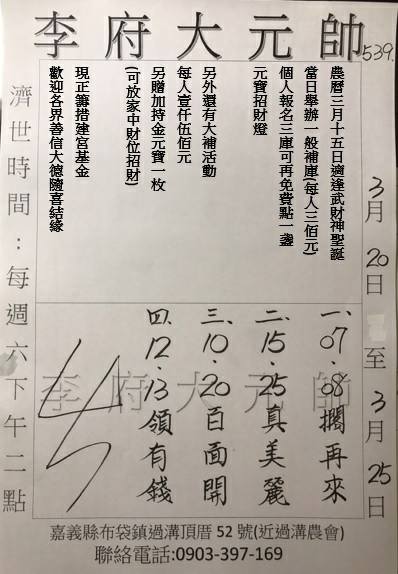 李府大元帥
539.
農曆三月十五日適逢武財神聖誕
當日舉辦一般補庫(每人三佰元)
個人報名三庫可再免費點一盞
元寶招財燈
另外還有大補活動
每人壹仟伍佰元
另贈加持金元寶一枚
(可放家中財位招財)
現正籌措建宮基金
歡迎各界善信大德隨喜結緣
3月20日至3月25日
一、07.08擱再來
二、15.25真美麗
三、10.20百面開
四、12.13領有錢
李府大元帥
濟世時間:每週六下午二點
嘉義縣布袋鎮過溝頂厝52號(近過溝農會)
聯絡電話:0903-397-169